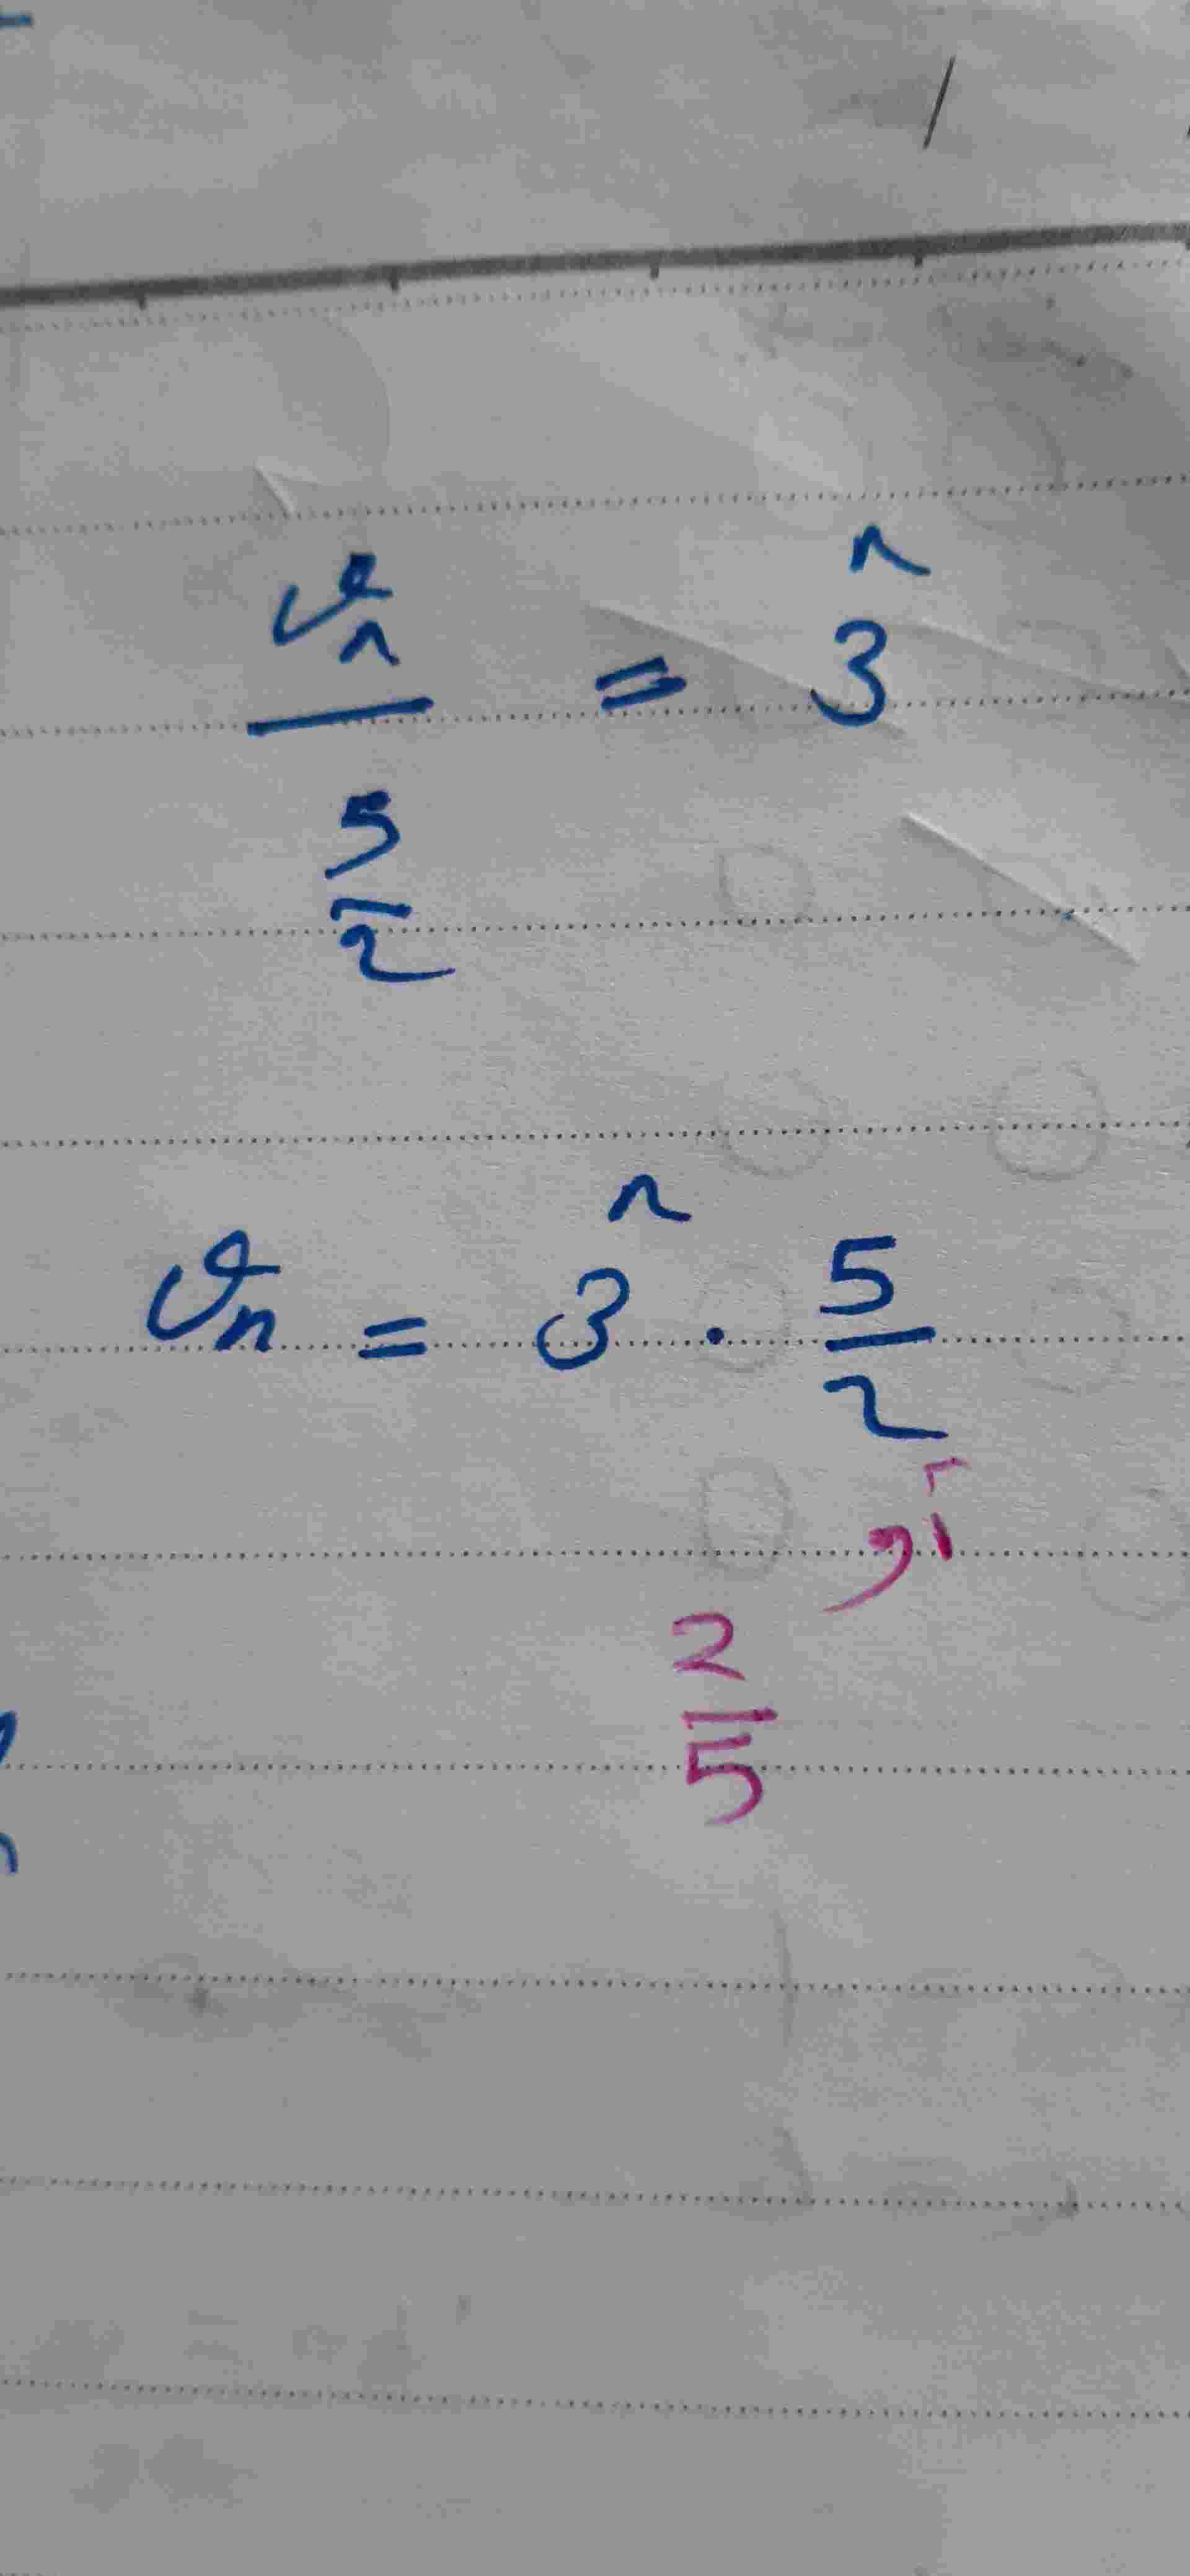 vₙ / (5/2) = 3ⁿ
vₙ = 3ⁿ · 5/2
أو
2/5